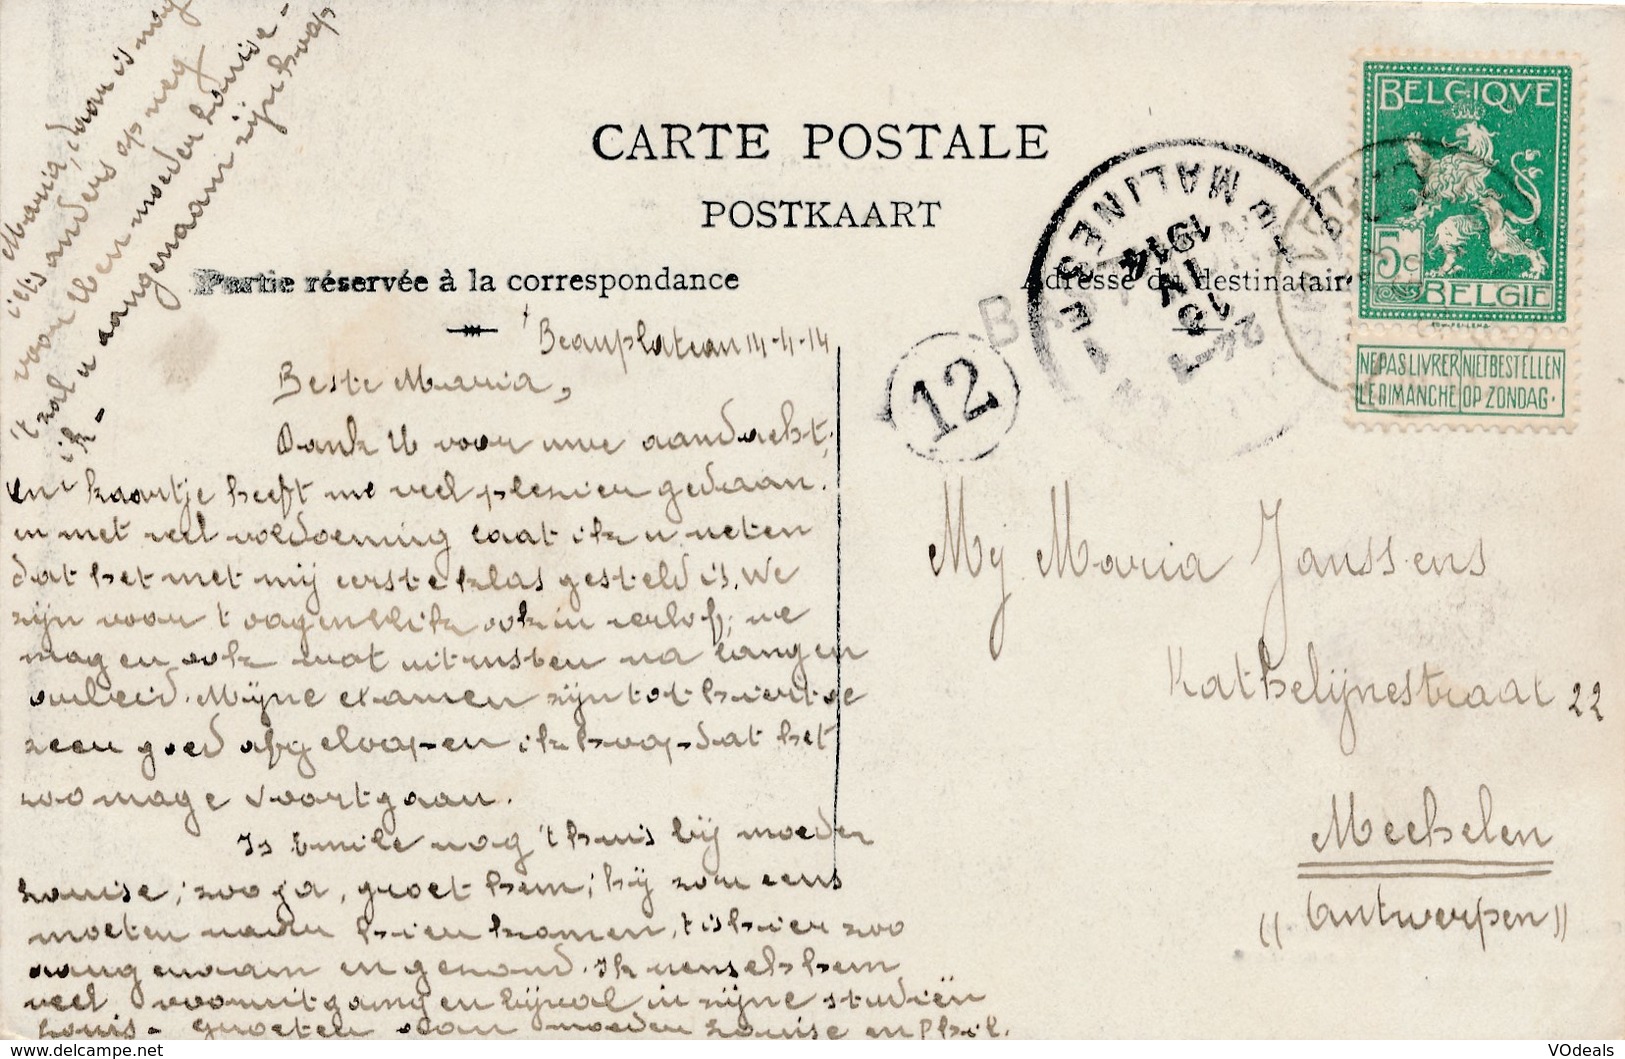 CARTE POSTALE
POSTKAART
Partie réservée à la correspondance
Adresse du destinataire
BELGIQVE
5c
BELGIE
NE PAS LIVRER NIET BESTELLEN
LE DIMANCHE OP ZONDAG.
MALINES
1914
12
Beauplateau 14-4-14
Beste Maria,
Dank U voor uwe aandacht,
Un kaartje heeft me veel plezier gedaan.
en met veel voldoening laat ik u weten
dat het met mij eerste klas gesteld is. We
zijn voor 't oogenblik ook in verlof; we
mogen ook wat uitrusten na langen
arbeid. Mijne examen zijn tot hiertoe
zeer goed afgeloopen ik hoop dat het
zoo mage voortgaan.
Is Emile nog 't huis bij moeder
Louise; zoo ja, groet hem; hij zou eens
moeten naar hier komen, 't is hier zoo
aangenaam en gezond. Ik wensch hem
veel vooruitgang en bijval in zijne studiën
Louis - Groeten aan moeder Louise en Phil.
Maria, daar is nog
iets anders op weg
voor U en moeder Louise -
't zal u aangenaam zijn hoop
ik -
Mej. Maria Janssens
Kathelijnestraat 22
Mechelen
(( Antwerpen ))
VOdeals